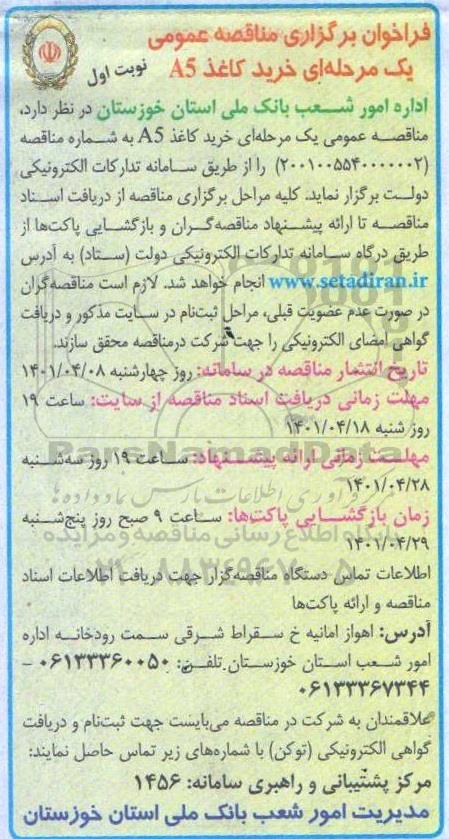 فراخوان برگزاری مناقصه عمومی
یک مرحله‌ای خرید کاغذ A5
نوبت اول
اداره امور شعب بانک ملی استان خوزستان در نظر دارد،
مناقصه عمومی یک مرحله‌ای خرید کاغذ A5 به شماره مناقصه
(۲۰۰۱۰۰۵۵۴۰۰۰۰۰۰۲) را از طریق سامانه تدارکات الکترونیکی
دولت برگزار نماید. کلیه مراحل برگزاری مناقصه از دریافت اسناد
مناقصه تا ارائه پیشنهاد مناقصه‌گران و بازگشایی پاکت‌ها از
طریق درگاه سامانه تدارکات الکترونیکی دولت (ستاد) به آدرس
www.setadiran.ir انجام خواهد شد. لازم است مناقصه‌گران
در صورت عدم عضویت قبلی، مراحل ثبت‌نام در سایت مذکور و دریافت
گواهی امضای الکترونیکی را جهت شرکت درمناقصه محقق سازند.
تاریخ انتشار مناقصه در سامانه: روز چهارشنبه ۱۴۰۱/۰۴/۰۸
مهلت زمانی دریافت اسناد مناقصه از سایت: ساعت ۱۹
روز شنبه ۱۴۰۱/۰۴/۱۸
مهلت زمانی ارائه پیشنهاد: ساعت ۱۹ روز سه‌شنبه
۱۴۰۱/۰۴/۲۸
زمان بازگشایی پاکت‌ها: ساعت ۹ صبح روز پنج‌شنبه
۱۴۰۱/۰۴/۲۹
اطلاعات تماس دستگاه مناقصه‌گزار جهت دریافت اطلاعات اسناد
مناقصه و ارائه پاکت‌ها
آدرس: اهواز امانیه خ سقراط شرقی سمت رودخانه اداره
امور شعب استان خوزستان.تلفن: ۰۶۱۳۳۳۶۰۰۵۰ -
۰۶۱۳۳۳۶۷۳۴۴
علاقمندان به شرکت در مناقصه می‌بایست جهت ثبت‌نام و دریافت
گواهی الکترونیکی (توکن) با شماره‌های زیر تماس حاصل نمایند:
مرکز پشتیبانی و راهبری سامانه: ۱۴۵۶
مدیریت امور شعب بانک ملی استان خوزستان
ParsNamadData
پایگاه اطلاع رسانی مناقصه و مزایده